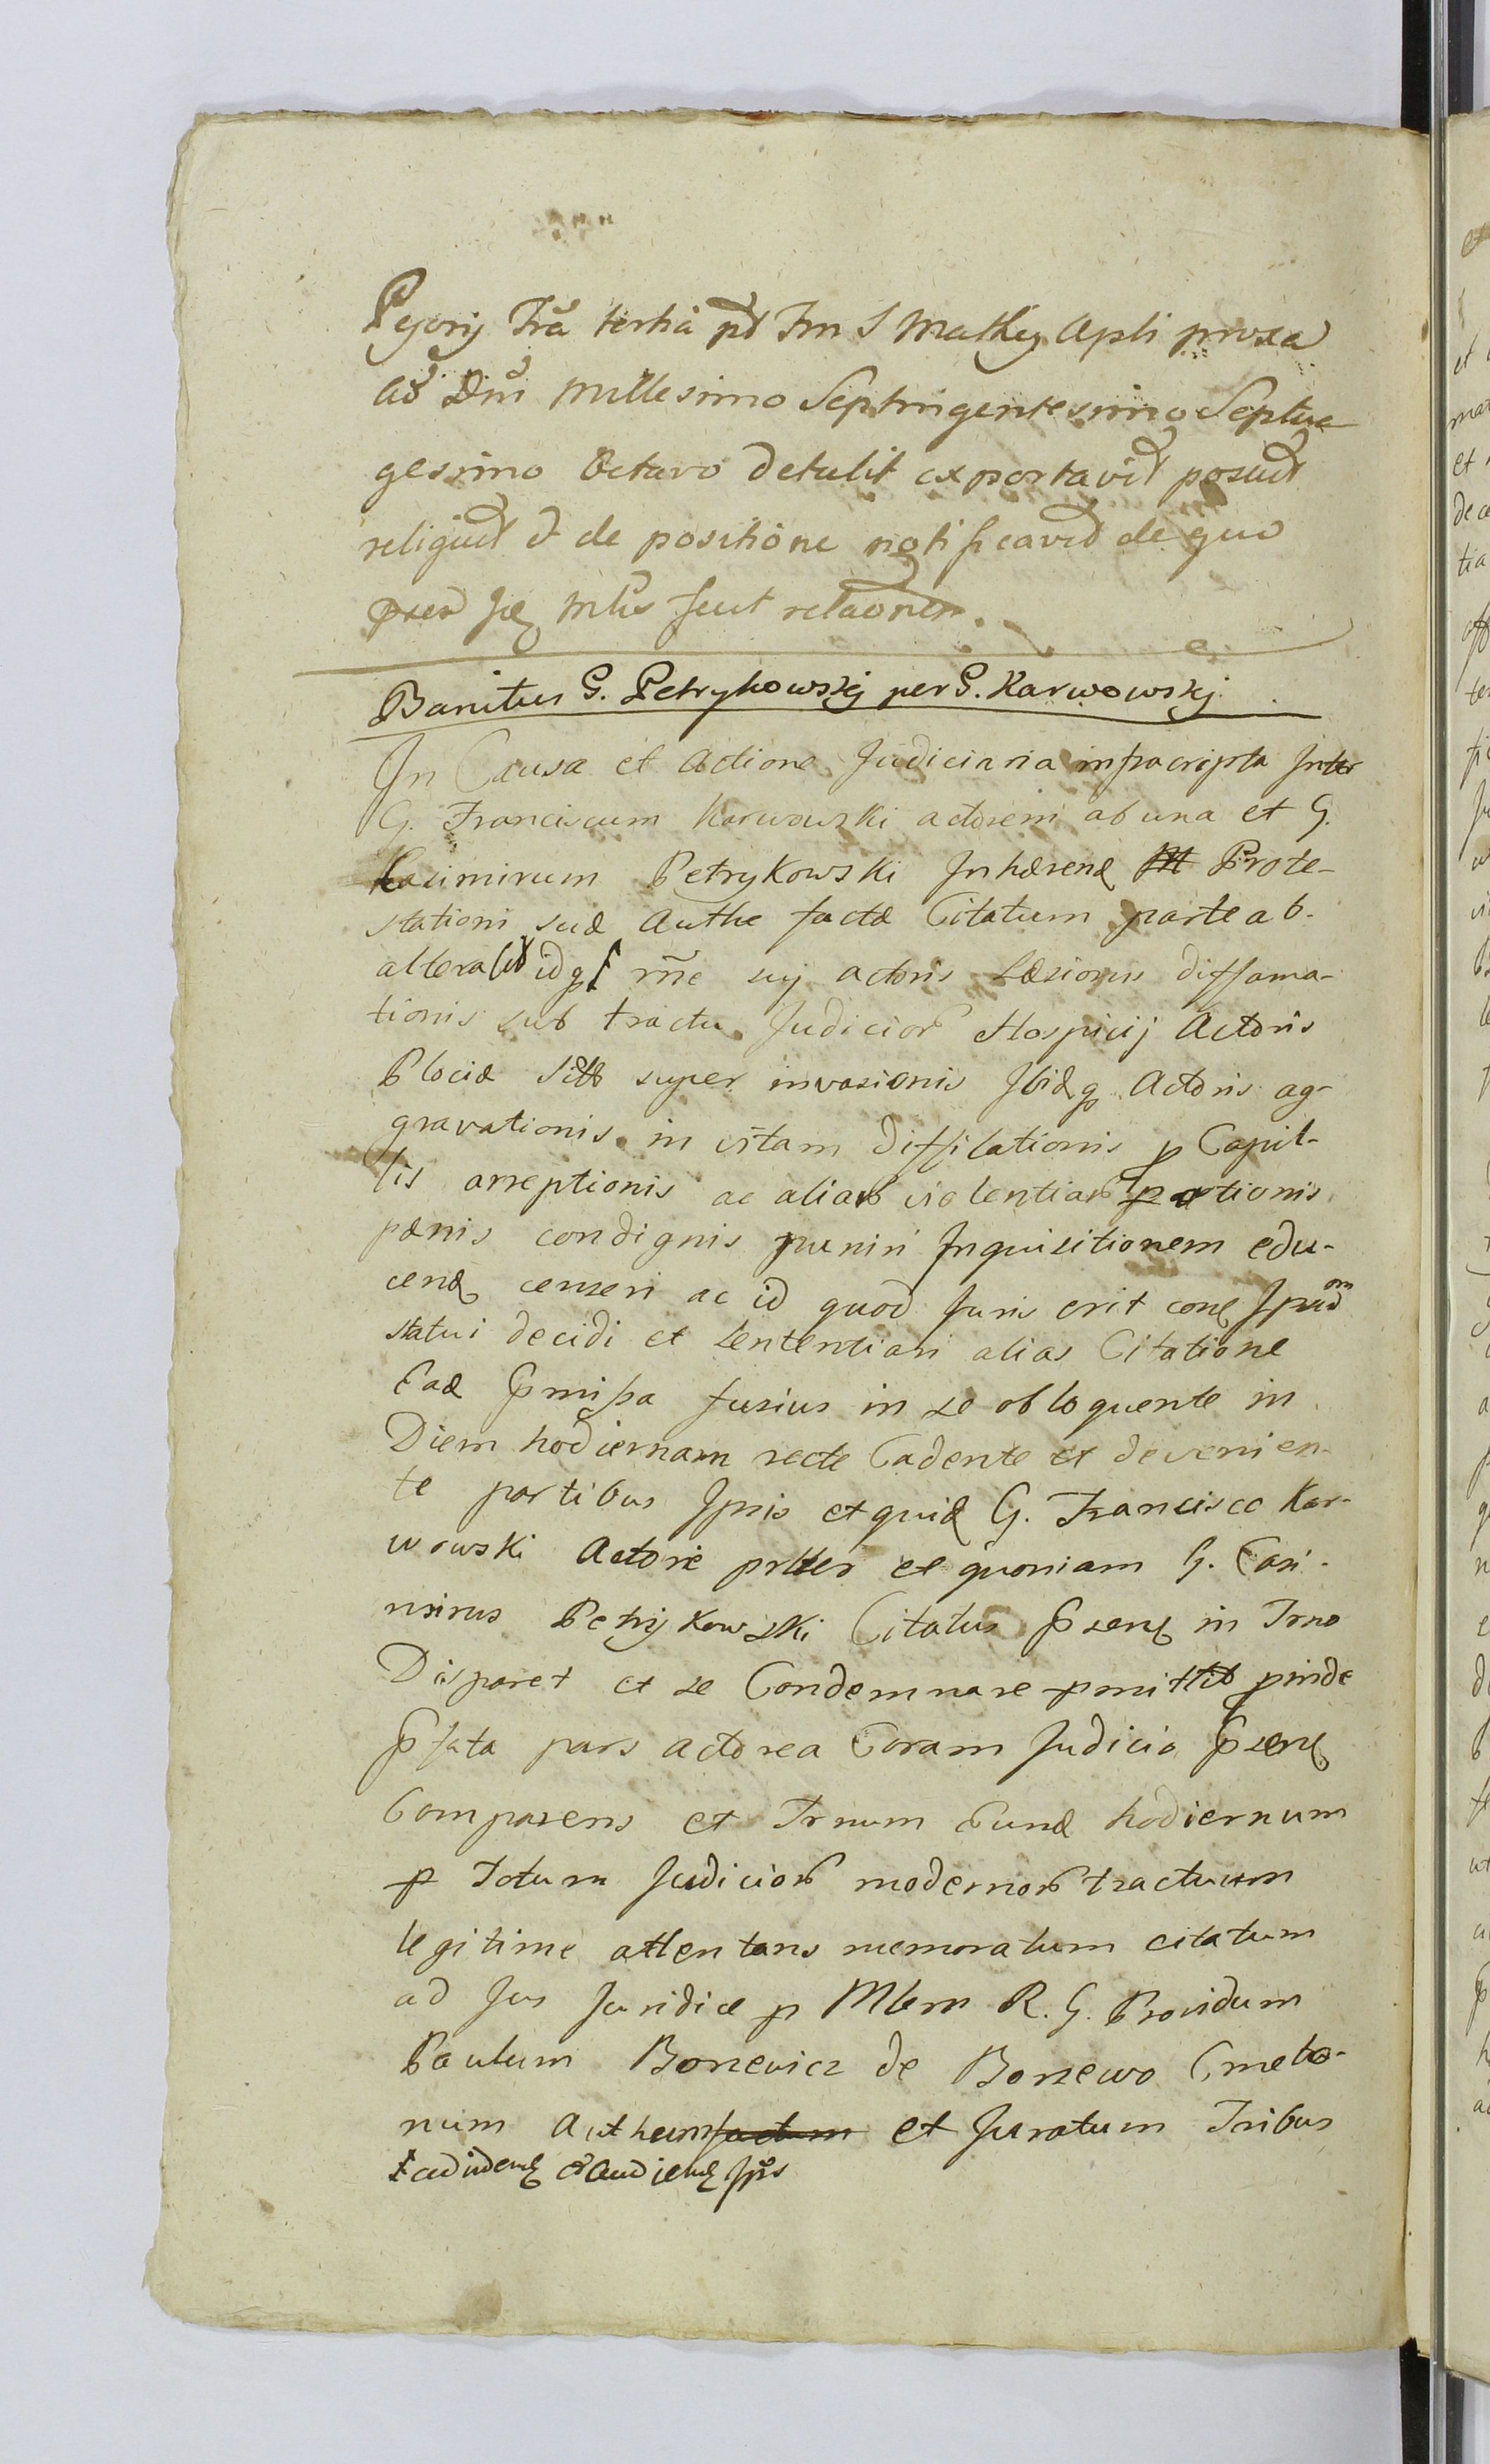 Pejorij Fra tertia pt Fm S Mathej Apli proxa
Ao Dni Millesimo Septingentesimo Septua
gesimo Octavo detulit exportavit posuit
reliquit & de positione notificavit de quo
Mlis fecit relaonem.
Banitus G. Petrykowskj per G. Karwowskj
In Causa et Actione Judiciaria infracripta Inter
G. Franciscum Karwowski actorem ab una et G.
Kasimirum Petrykowski Inhæren Prote-
stationi suæ Authe factæ Citatum parte ab
altera idq rne suj actoris Læsionis diffama-
tionis sub tractu Judicior Hospicij Actoris
Plociæ super invasionis Ibidq Actoris ag-
gravationis in vitam diffilationis p Capil-
lis arreptionis ac aliar violentiar ptionis
pænis condignis puniri Inquisitionem edu-
cend censeri ac id quod Juris erit cone Ipsudom
statui decidi et sententiari alias Citatione
Ead pmissa fusius in se obloquente in
Diem hodiernam recte Cadente et devenien-
te partibus Ipsis et quid G. Francisco Kar-
wowski Actore prtter et quoniam G. Casi-
mirus Petrykowski Citatus psens in Trno
Disparet et se Condemnare pmittit pinde
pfata pars actorea Coram Judicio psen
Comparens et Trnum Eund hodiernum
p Totum Judicior modernor tractuum
legitime attentans memoratum citatum
ad Jus Juridice p Mlem R. G. Providum
Paulum Bonewicz de Bonewo Cmeto-
num Authem factum et Juratum Tribus